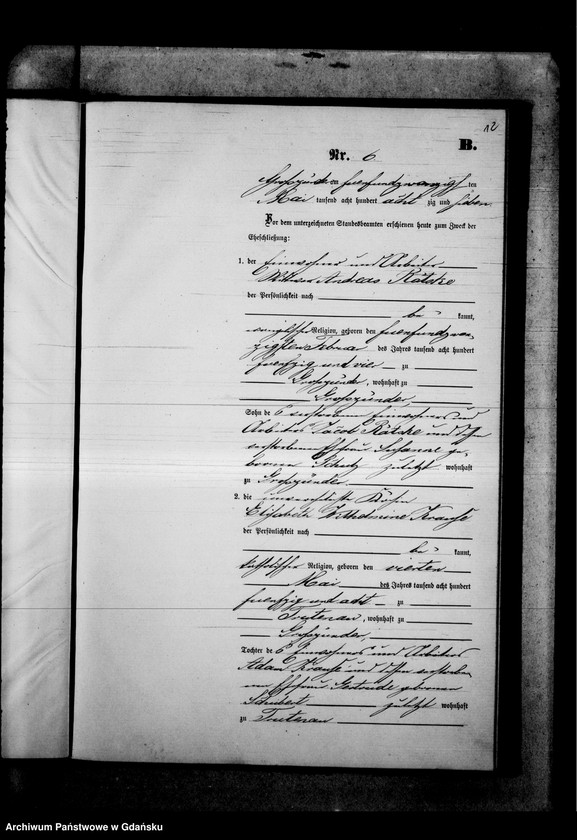 12
B.
Nr. 6
am fuenfundzwanzigsten
Mai tausend acht hundert acht zig und sieben
Vor dem unterzeichneten Standesbeamten erschienen heute zum Zweck der
Eheschließung:
1. der Einwohner und Arbeiter
Andreas Rätzke
der Persönlichkeit nach
be kannt,
Religion, geboren den fuenfundzwan
zigsten Februar des Jahres tausend acht hundert
fuenfzig und vier zu
Großzünder, wohnhaft zu
Großzünder,
Sohn des verstorbenen Einwohners und
Arbeiters Jacob Rätzke und
Ehefrau Susanne ge
borenen zuletzt wohnhaft
zu Großzünder
2. die unverehelichte
Elisabeth Wilhelmine Krause
der Persönlichkeit nach
be kannt,
katholischer Religion, geboren den vierten
Mai des Jahres tausend acht hundert
fuenfzig und acht zu
Trutenau, wohnhaft zu
Großzünder,
Tochter des Einwohners und Arbeiters
Adam Krause und verstorbe
nen Ehefrau geborenen
Schubert zuletzt wohnhaft
zu Trutenau
Archiwum Państwowe w Gdańsku